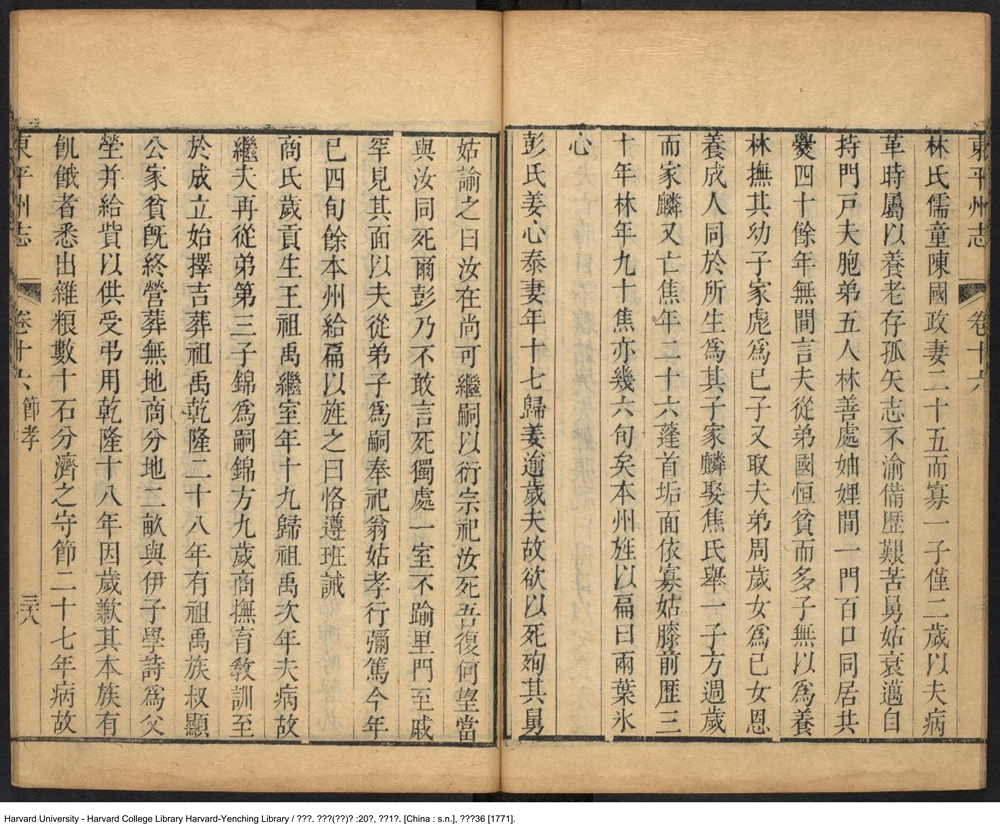 東平州志 卷十六
林氏儒童陳國政妻二十五而寡一子僅二歲以夫病
革時屬以養老存孤矢志不渝備歷艱苦舅姑衰邁自
持門戸夫胞弟五人林善處妯娌間一門百口同居共
爨四十餘年無間言夫從弟國恒貧而多子無以為養
林撫其幼子家彪為已子又取夫弟周歲女為已女恩
養成人同於所生為其子家麟娶焦氏舉一子方週歲
而家麟又亡焦年二十六蓬首垢面依寡姑膝前歷三
十年林年九十焦亦幾六旬矣本州旌以扁曰兩葉氷
心
彭氏姜心泰妻年十七歸姜逾歲夫故欲以死殉其舅
姑諭之曰汝在尚可繼嗣以衍宗祀汝死吾復何望當
與汝同死爾彭乃不敢言死獨處一室不踰里門至戚
罕見其面以夫從弟子為嗣奉祀翁姑孝行彌篤今年
已四旬餘本州給扁以旌之曰恪遵班誡
商氏歲貢生王祖禹繼室年十九歸祖禹次年夫病故
繼夫再從弟第三子錦為嗣錦方九歲商撫育敎訓至
於成立始擇吉葬祖禹乾隆二十八年有祖禹族叔顯
公家貧旣終營葬無地商分地二畝與伊子學詩為父
塋并給貲以供受弔用乾隆十八年因歲歉其本族有
飢餓者悉出雜粮數十石分濟之守節二十七年病故
東平州志 卷十六 節孝 三八